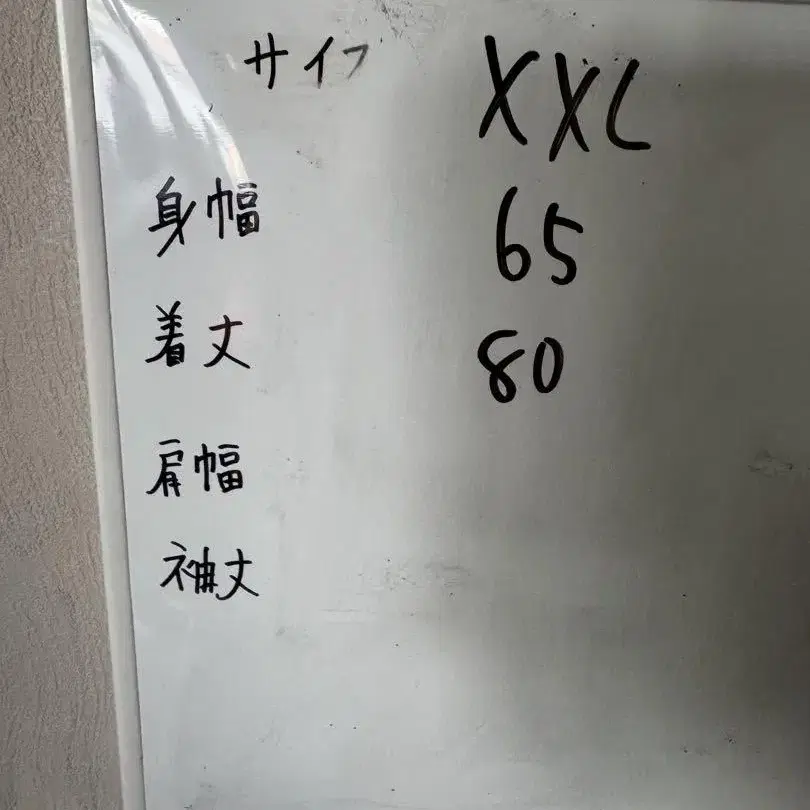 サイズ XXL
身幅 65
着丈 80
肩幅
袖丈